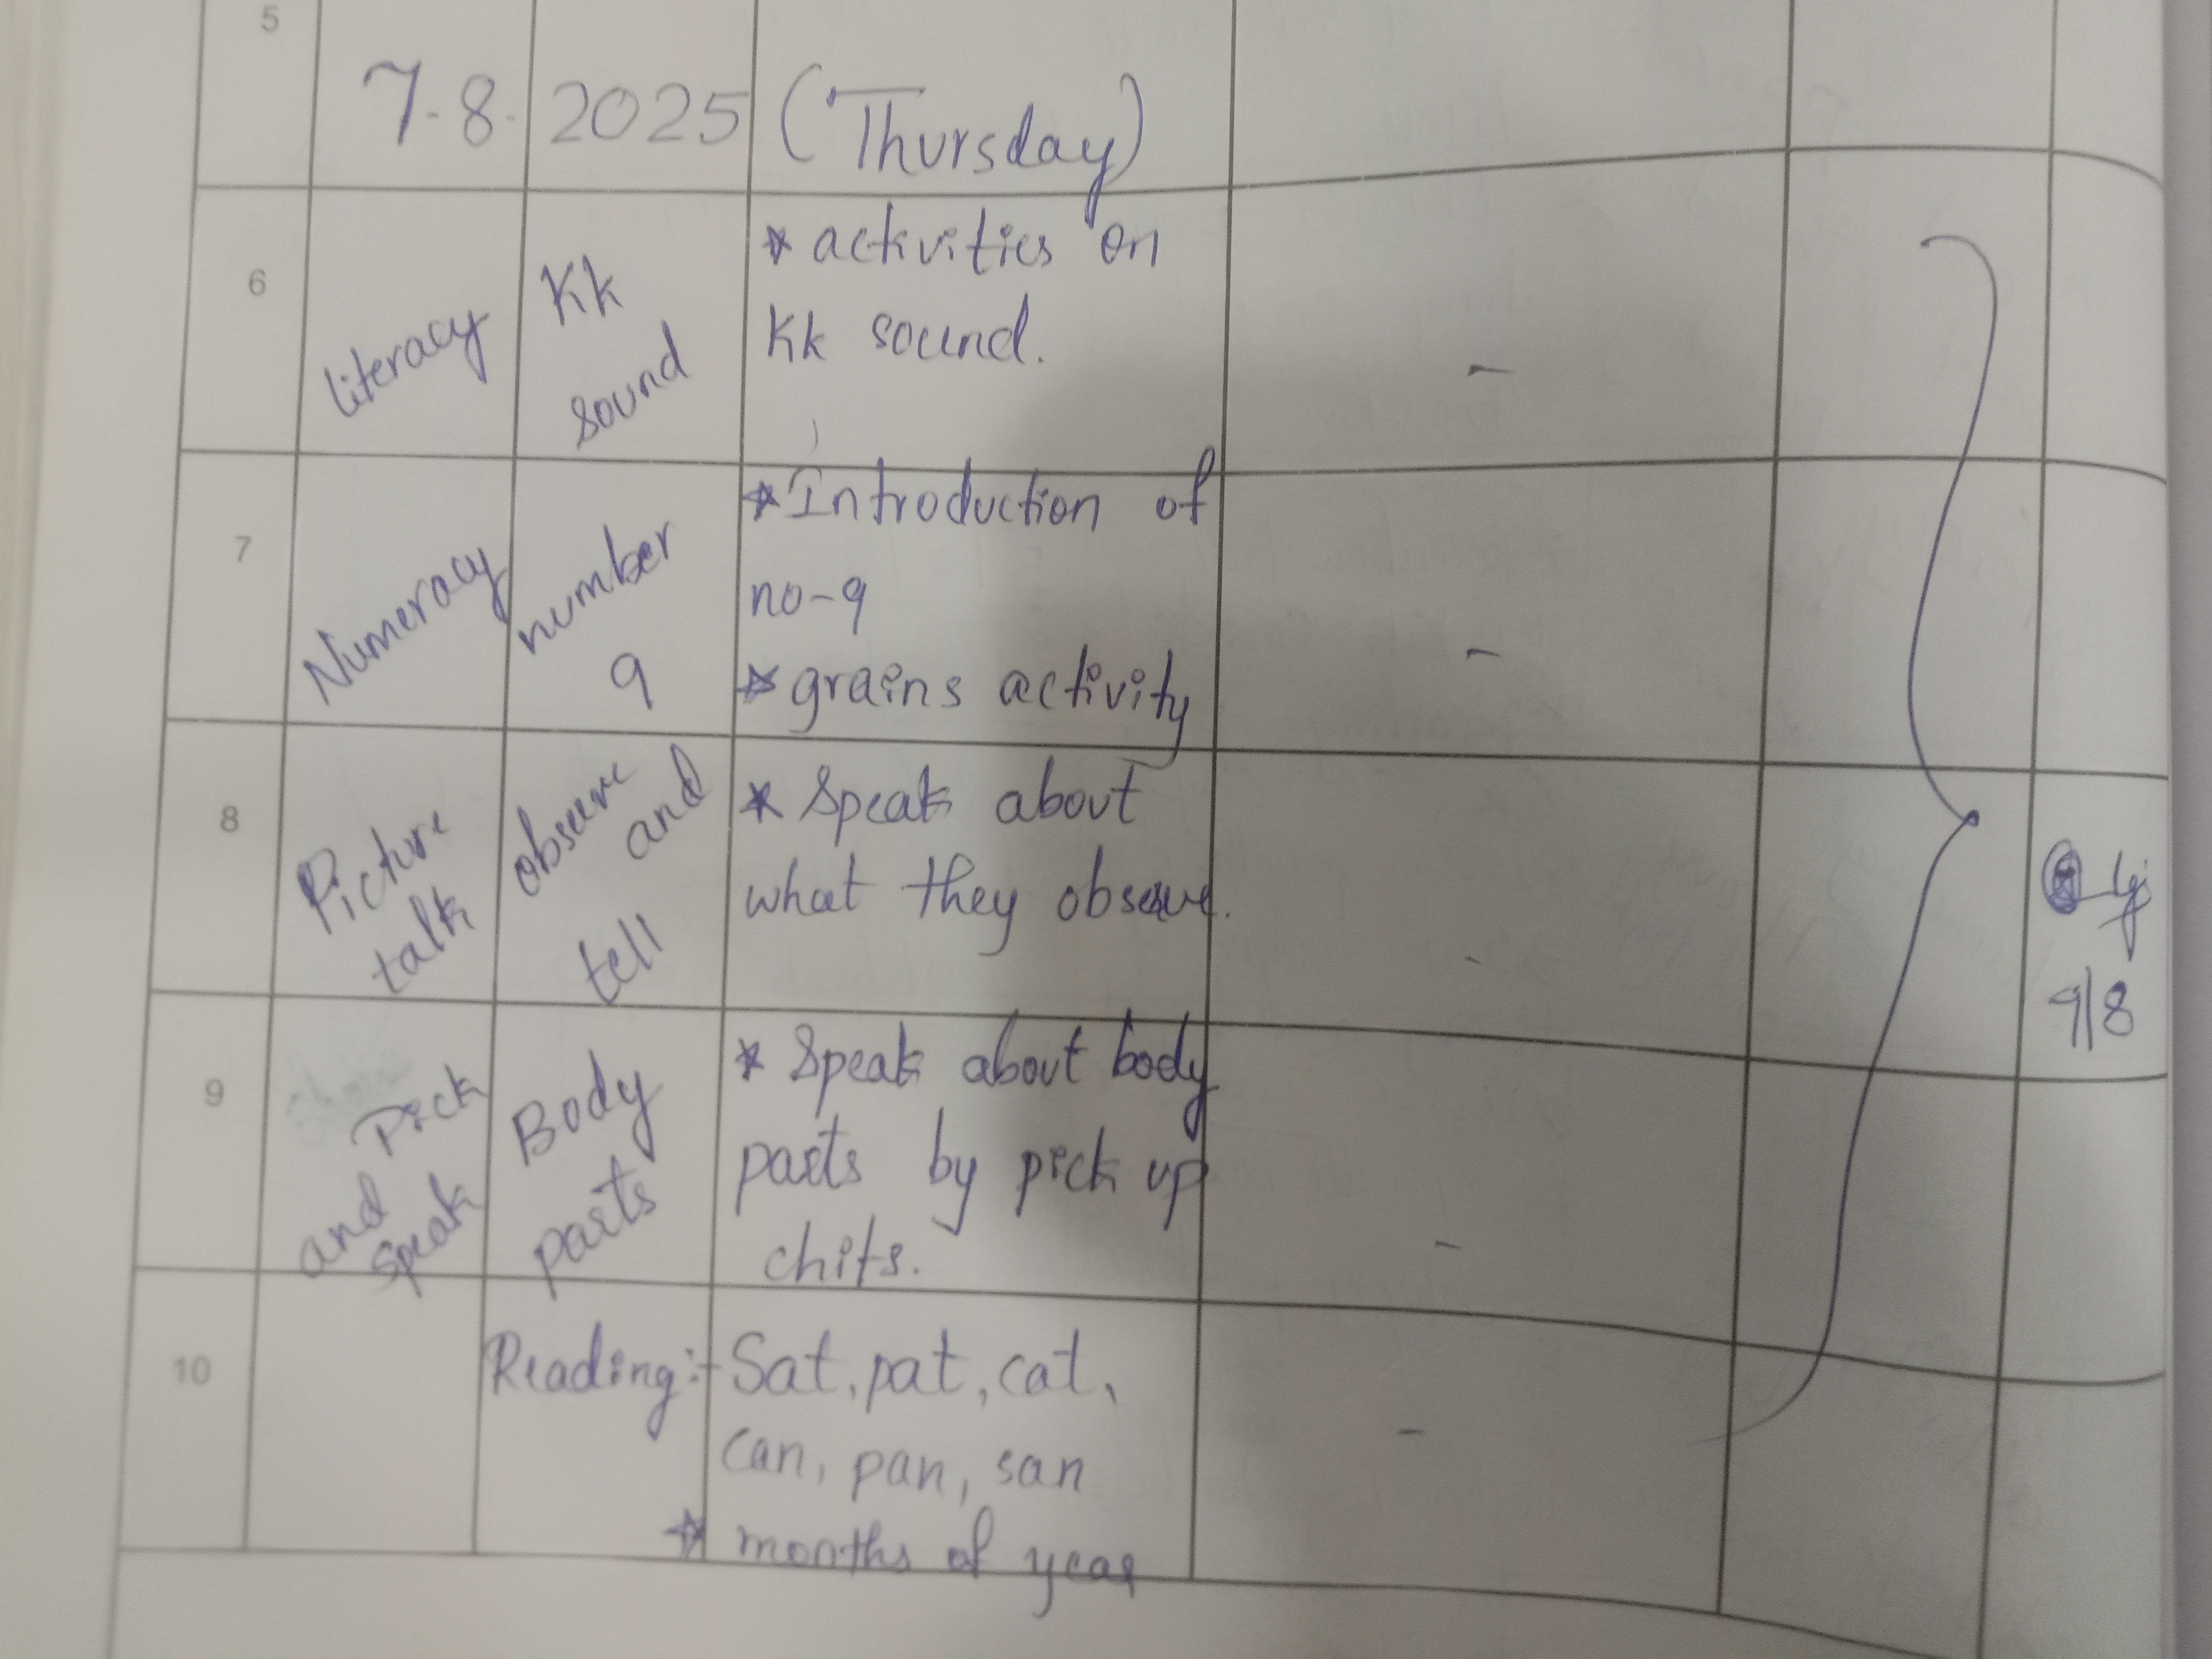 5
7.8.2025 (Thursday)
6
literacy
Kk
sound
* activities on
Kk sound.
-
7
Numeracy
number
9
* Introduction of
no-9
* grains activity
-
8
Picture
talk
observe
and
tell
* Speak about
what they observe.
-
9
Pick
and
speak
Body
parts
* Speak about body
parts by pick up
chits.
-
10
Reading:-
Sat, pat, cat,
can, pan, san
* months of year
-
9/8